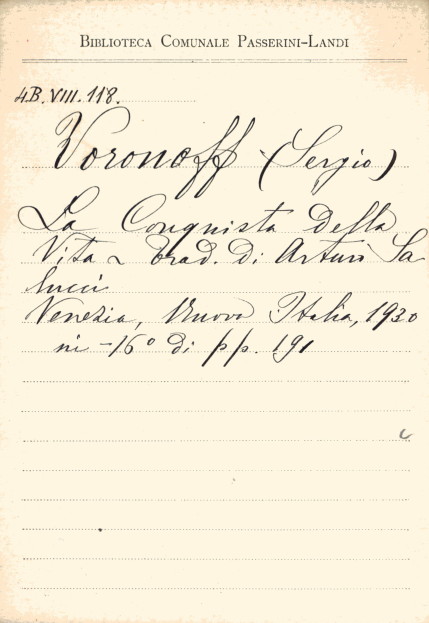 BIBLIOTECA COMUNALE PASSERINI-LANDI
4.B.VIII.118.
Voronoff (Sergio)
La Conquista della
Vita ~ Trad. di Arturo Sa
lucci
Venezia, Nuova Italia, 1930
in -16º di pp. 191